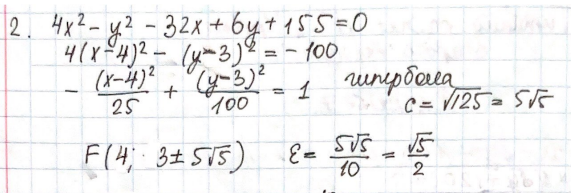 2. 4x² - y² - 32x + 6y + 155 = 0
4(x-4)² - (y-3)² = -100
- (x-4)²/25 + (y-3)²/100 = 1 гипербола
c = √125 = 5√5
F(4; 3 ± 5√5) ε = 5√5/10 = √5/2